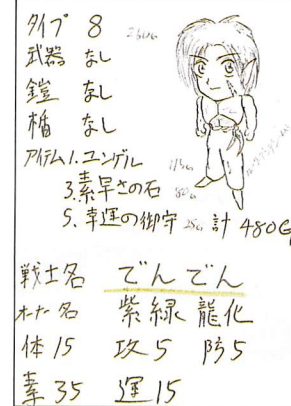 タイプ 8
武器 なし
鎧 なし
楯 なし
アイテム1.エンゲル
3.素早さの石
5.幸運の御守 計 480G
戦士名 でんでん
オーナー名 紫緑 龍化
体 15 攻 5 防 5
素 35 運 15